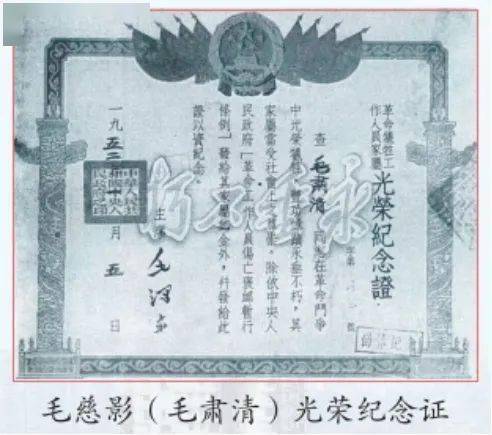 革命犧牲工
作人員家屬
光榮紀念證
字第 號
查毛肅清同志在革命鬥爭
中光榮犧牲,豐功偉績永垂不朽,其
家屬當受社會上之尊崇。除依中央人
民政府「革命工作人員傷亡褒卹暫行
條例」發給其家屬卹金外,幷發給此
證以資紀念。
主席 毛澤东
一九五二 月五日
中華人民共和國中央人民政府之印
毛慈影(毛肃清)光荣纪念证